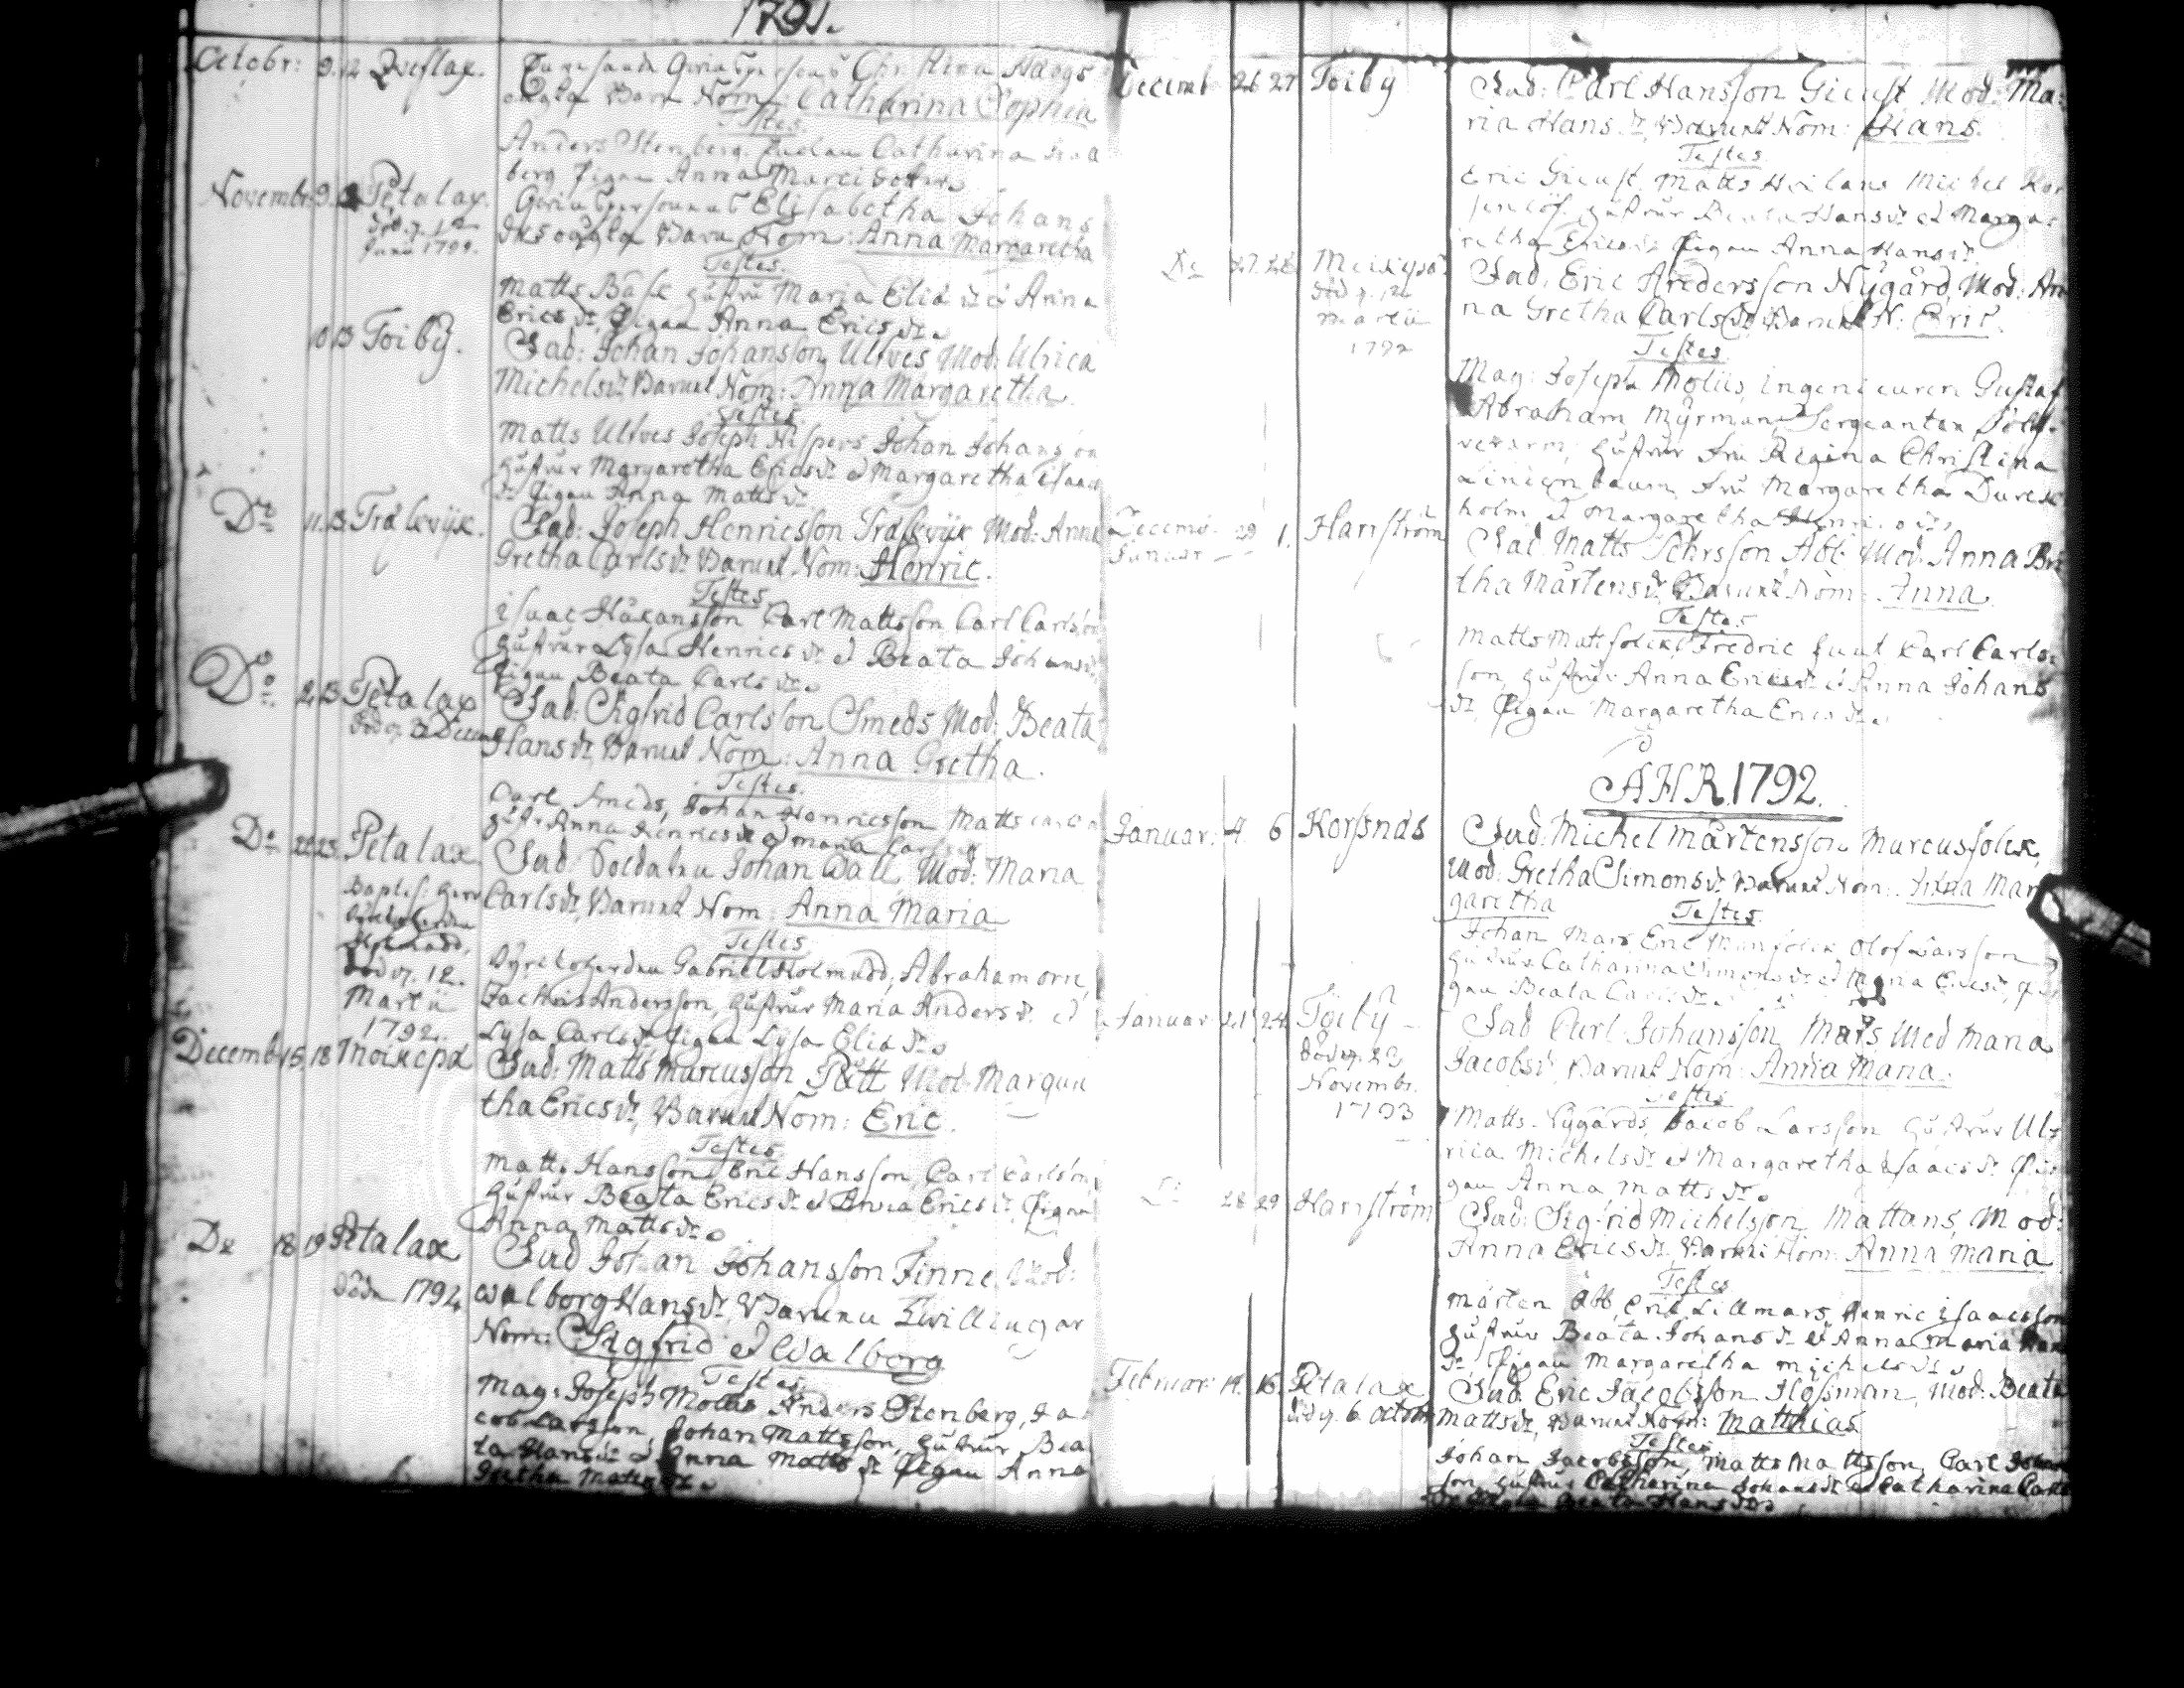 1791.
Octobr: 9. 12
Christina
Barn Nom: Catharina Sophia
Testes.
Anders Stenberg. Catharina
berg Pigan Anna
Novembr 9. Petalax.
död d. 12
Junii
Elisabetha Johans
dr oägta Barn Nom: Anna Margaretha
Testes.
Matts Bäck hustru Maria Eliæ dr et Anna
Erics dr, Pigan Anna Erics dr.
10 13 Töiby.
Fad: Johan Johansson Ulfves Mod: Ulrica
Michelsdr Barnet Nom: Anna Margaretha.
Testes.
Matts Ulfves Joseph Nispers Johan Johansson
hustrur Margaretha Ericsdr et Margaretha Isaacs
dr Pigan Anna Mattsdr
Do 11. 13. Träskvijk.
Fad: Joseph Henricsson Träskvijk Mod: Anna
Gretha Carlsdr Barnet Nom: Henric.
Testes
Isaac Håkansson Carl Mattsson Carl Carlsson
hustrur Lysa Henrics dr et Beata Johansdr
Pigan Beata Carlsdr.
Do 2. 13 Petalax
död d. Decemb
Fad: Sigfrid Carlsson Smeds Mod: Beata
Hansdr, Barnet Nom: Anna Gretha.
Testes.
Carl Smeds, Johan Henricsson Matts
hustr Anna Henricsdr et Maria Carlsdr
Do 22 25. Petalax
Baptis. Herr
Holmudd,
död d. 12.
Martii
1792.
Fad: Soldaten Johan Wall, Mod: Maria
Carlsdr, Barnet Nom: Anna Maria
Testes
Gabriel Holmudd, Abraham Orn,
Zachris Andersson, hustrur Maria Anders dr et
Lysa Carlsdr Pigan Lysa Eliæ dr.
Decemb 15. 18
Fad: Matts Marcusson Pått Mod: Margare
tha Ericsdr, Barnet Nom: Eric.
Testes
Matts Hansson, Eric Hansson, Carl Carlsson,
hustrur Beata Ericsdr et Anna Ericsdr, Pigan
Anna Mattsdr.
Do 18 19 Petalax
Döda 1794
Fad Johan Johansson Finne, Mod:
Walborg Hansdr, Barnen Twillingar
Nom: Sigfrid et Walborg
Testes
Mag: Joseph Molliis Anders Stenberg, Ja
cob Larsson, Johan Mattsson, hustrur Bea
ta Hansdr et Anna Matts dr Pigan Anna
Gretha Mattsdr.
Decemb 26 27 Töiby
Fad: Carl Hansson Gieust Mod: Ma:
ria Hans dr, Barnet Nom: Hans.
Testes.
Eric Gieust. Matts Michel Kor
hustrur Beata Hansdr et Marga:
retha Ericsdr Pigan Anna Hansdr.
Do 27. 28.
död d. 12
Martii
1792
Fad: Eric Andersson Nygård, Mod: An
na Gretha Carlsdr, Barnet N: Eric.
Testes
Mag: Joseph Moliis, Ingenieuren Gustaf
Abraham Myrman Sergeanten
hustrur Fru Regina Christina
Lindenbaum, Fru Margaretha
holm et Margaretha
Decemb. 29 1. Harrström
Januar
Fad: Matts Abb: Mod: Anna Bri
tha Mårtensdr, Barnet Nom: Anna
Testes
Matts Matsfolck, Fredric Carl Carls:
son, hustrur Anna Ericsdr et Anna Johans
dr, Pigan Margaretha Erics dr.
AHR. 1792.
Januar: 4. 6 Korssnäs
Fad: Michel Mårtensson Marcusfolck,
Mod: Gretha Simonsdr Barnet Nom: Anna Mar
garetha
Testes.
Johan Mars Eric Mansfolck, Olof Larsson
hustrur Catharina Simonsdr et Maria Ericsdr, Pi
gan Beata Carlsdr.
Januar 21 24 Töiby
död d. 23
Novembr.
1793
Fad Carl Johansson Mars Mod Maria
Jacobsdr Barnet Nom: Anna Maria.
Testes
Matts Nygårds, Jacob Larsson hustrur Ul:
rica Michelsdr et Margaretha Isaacsdr Pi
gan Anna Matts dr.
28 29 Harrström
Fad: Sigfrid Michelsson Mattans, Mod:
Anna Ericsdr, Barnet Nom: Anna Maria
Testes
Mårten Abb, Eric Lillmars, Henric Isaacsson
hustrur Beata Johans dr et Anna Maria
dr, Pigan Margaretha Michelsdr.
Februar: 14. 16. Petalax
död d. 6 Octobr
Fad. Eric Jacobsson Hossman, Mod: Beata
Mattsdr, Barnet Nom: Matthias
Testes
Johan Jacobsson, Matts Mattsson, Carl Johan
son, hustrur Catharina Johansdr et Catharina Carls
dr Pigan Beata Hansdr.